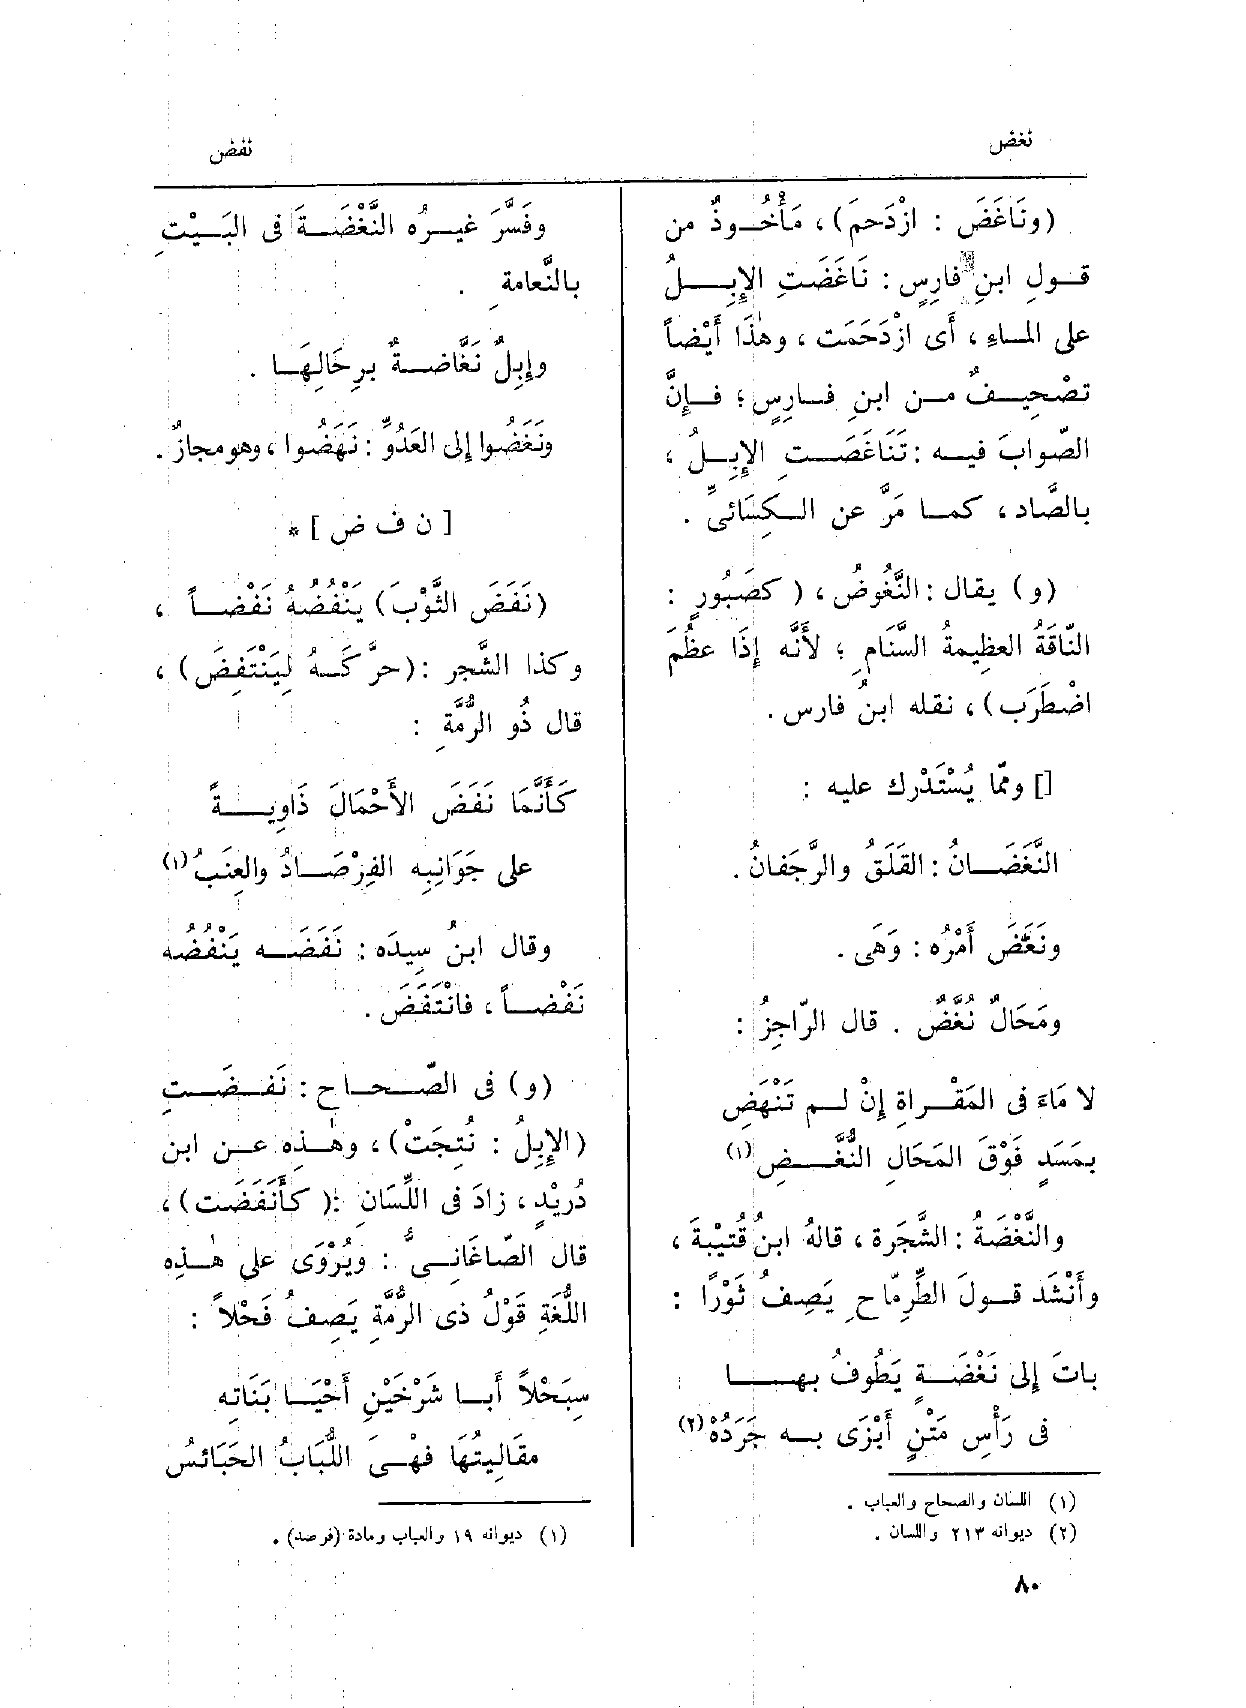 نغض
نفض
(ونَاغَضَ : ازْدَحمَ) ، مَأْخُـوذٌ من
قـولِ ابنِ فارِسٍ : نَاغَضَتِ الإِبِــلُ
على المـاءِ ، أَى ازْدَحَمَت ، وهٰذَا أَيْضاً
تصْحِيـفٌ مـن ابنِ فـارِسٍ ؛ فـإِنَّ
الصّوابَ فيـه : تَنَاغَصَـتِ الإِبِـلُ ،
بالصَّاد ، كمـا مَرَّ عن الـكِسَائىِّ .
(و) يقال : النَّغُوضُ ، ( كصَبُورٍ :
النّاقَةُ العظِيمةُ السَّنَامِ ؛ لأَنَّه إِذَا عظُمَ
اضْطَرَب) ، نقله ابنُ فارس .
[] وممّا يُسْتَدْرك عليه :
النَّغَضَـانُ : القَلَقُ والرَّجَفانُ .
ونَغَضَ أَمْرُه : وَهَى .
ومَحَالٌ نُغَّضٌ . قال الرّاجِزُ :
لا مَاءَ فى المَقْـراةِ إِنْ لـم تَنْهَضِ
بمَسَدٍ فَوْقَ المَحَالِ النُّغَّـضِ (١)
والنَّغْضَةُ : الشَّجَرة ، قالهُ ابنُ قُتيْبةَ ،
وأَنْشَد قـولَ الطِّرِمّاحِ يَصِفُ ثَوْرًا :
باتَ إِلى نَغْضَـةٍ يَطُوفُ بهــا
فى رَأْسِ مَتْنٍ أَبْزَى بـه جَرَدُهْ (٢)
(١) اللسان والصحاح والعباب .
(٢) ديوانه ٢١٣ واللسان .
٨٠
وفَسَّرَ غيـرُه النَّغْضَـةَ فى البَيْتِ
بالنَّعامةِ .
وإِبِلٌ نَغَّاضـةٌ برِحَالِهَـا .
ونَغَضُوا إِلى العَدُوِّ : نَهَضُوا ، وهو مجازٌ .
[ ن ف ض ] *
(نَفَضَ الثَّوْبَ) يَنْفُضُهُ نَفْضـاً ،
وكذا الشَّجر : (حرَّكَـهُ لِيَنْتَفِضَ) ،
قال ذُو الرُّمَّةِ :
كَأَنَّمَا نَفَضَ الأَحْمَالَ ذَاوِيــةً
على جَوَانِبِه الفِرْصَـادُ والعِنَبُ (١)
وقال ابنُ سِيدَه : نَفَضَـه يَنْفُضُه
نَفْضـاً ، فانْتَفَضَ .
(و) فى الصّـحـاح : نَفَـضَـتِ
(الإِبِلُ : نُتِجَتْ) ، وهٰـذِه عـن ابن
دُريْدٍ ، زادَ فى اللِّسَانِ : ( كأَنفَضَت) ،
قال الصّاغَانِـىُّ : ويُرْوَى على هٰـذِه
اللُّغَةِ قَوْلُ ذى الرُّمَّةِ يَصِفُ فَحْلاً :
سِبَحْلاً أَبـا شَرْخَيْنِ أَحْيَـا بَنَاتِه
مقالِيتُهَا فهْـىَ اللُّبَابُ الحَبَائسُ
(١) ديوانه ١٩ والعباب ومادة (فرصد) .